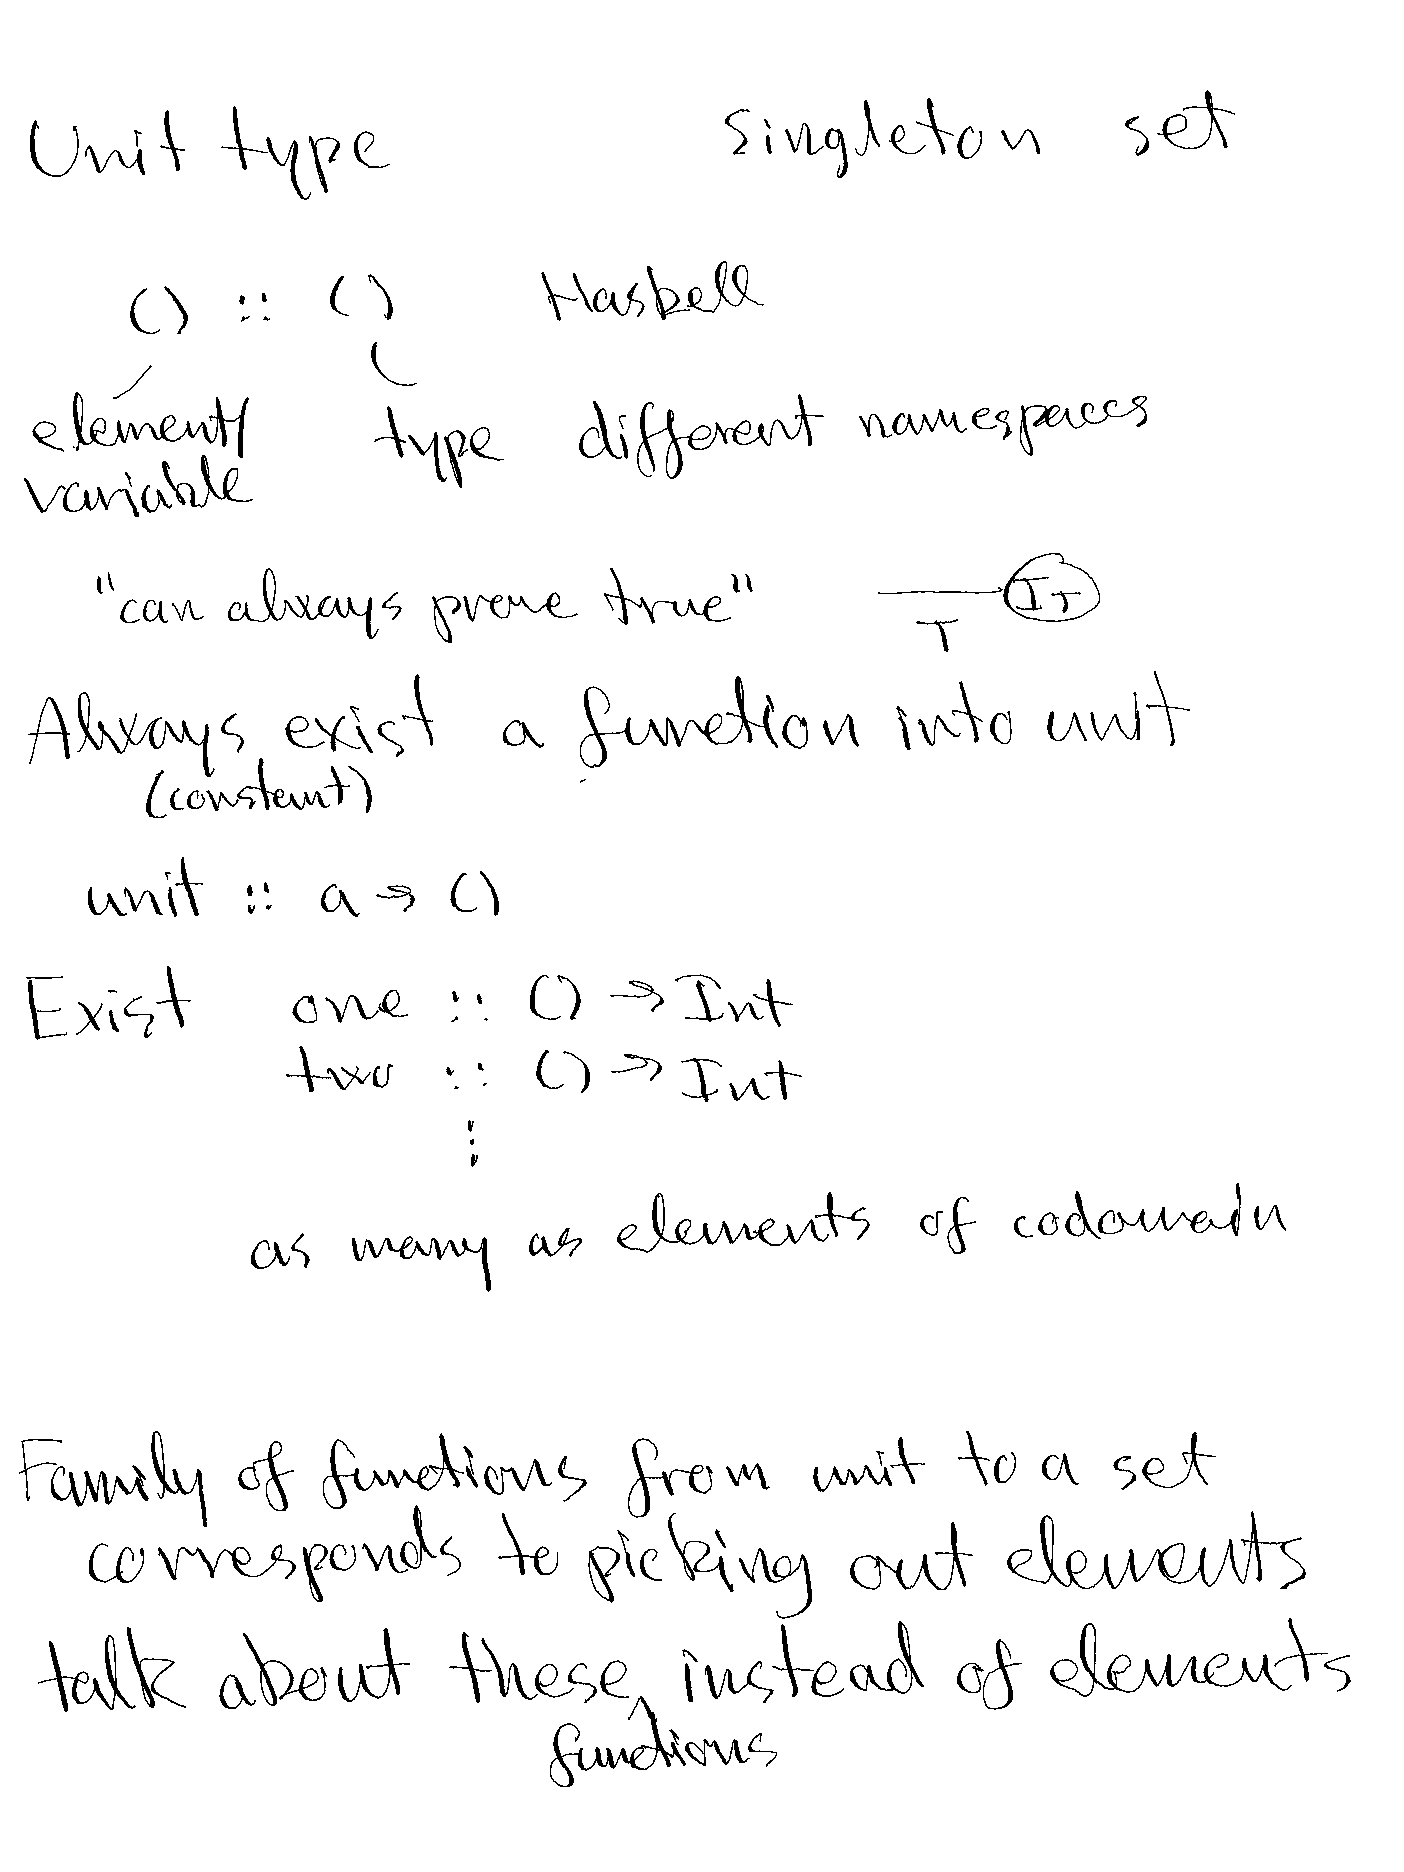 Unit type singleton set
() :: () Haskell
element/ type different namespaces
variable
"can always prove true" ⊤ I⊤
Always exist a function into unit
(constant)
unit :: a → ()
Exist one :: () → Int
two :: () → Int
⋮
as many as elements of codomain
Family of functions from unit to a set
corresponds to picking out elements
talk about these instead of elements
functions